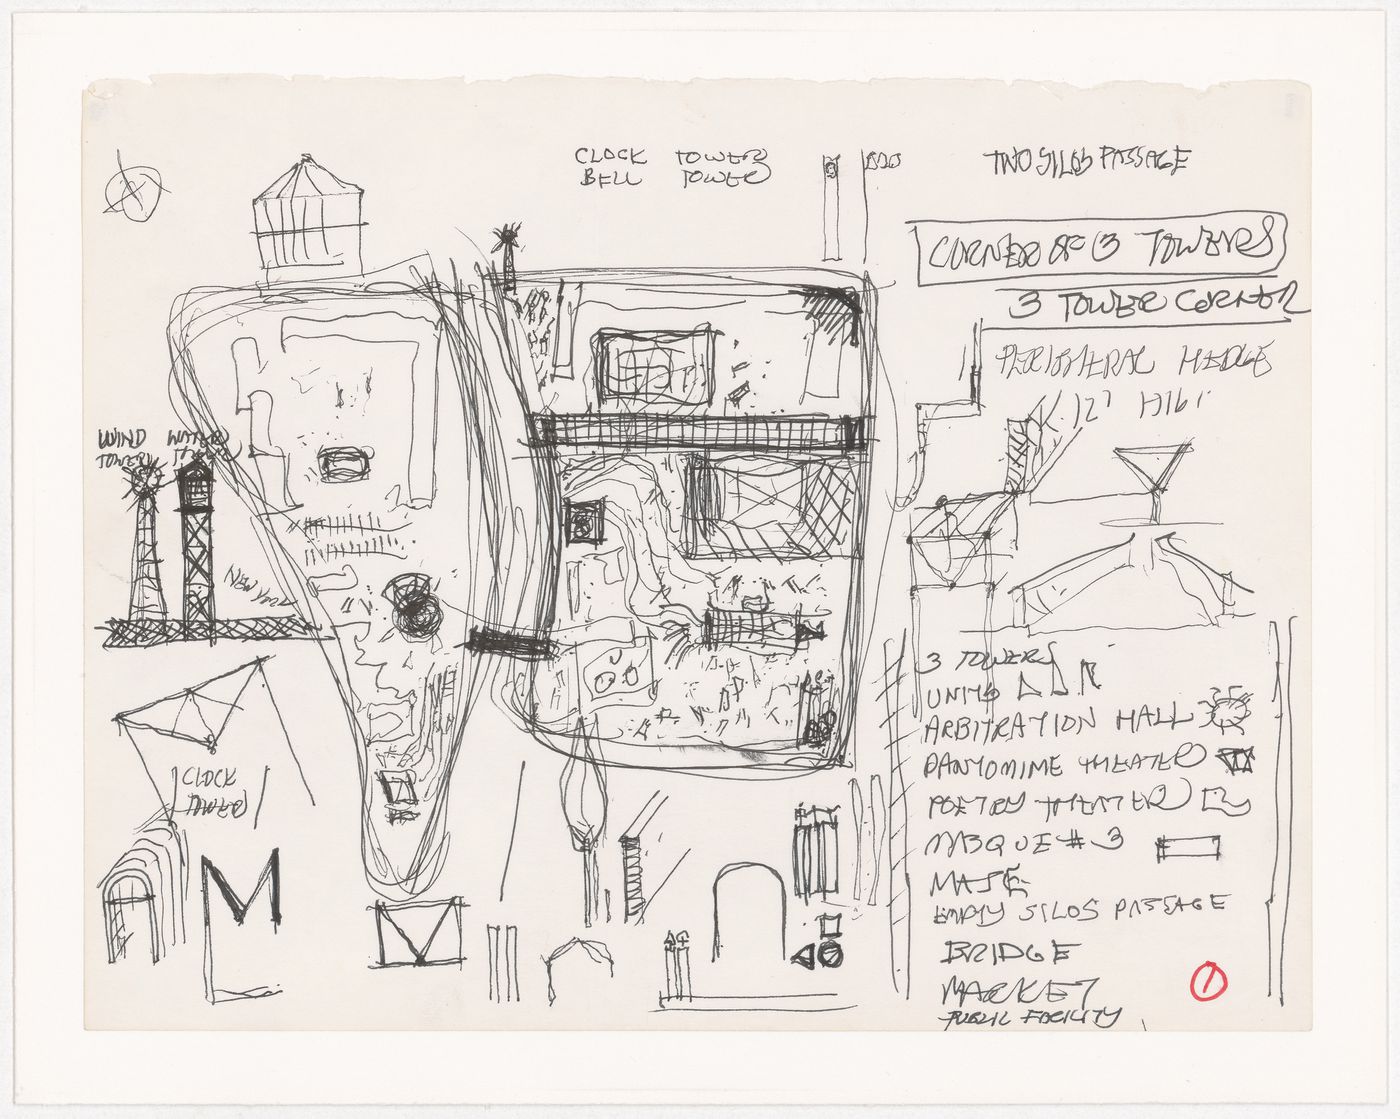 CLOCK TOWER
BELL TOWER
TWO SILOS PASSAGE
CORNER OF 3 TOWERS
3 TOWER CORNER
PERIPHERAL HEDGE
12' HIGH
WIND TOWER
WATER TOWER
CLOCK
TOWER
3 TOWERS
ARBITRATION HALL
PANTOMIME THEATER
POETRY THEATER
MASQUE #3
MAZE
EMPTY SILOS PASSAGE
BRIDGE
MARKET
PUBLIC FACILITY
1